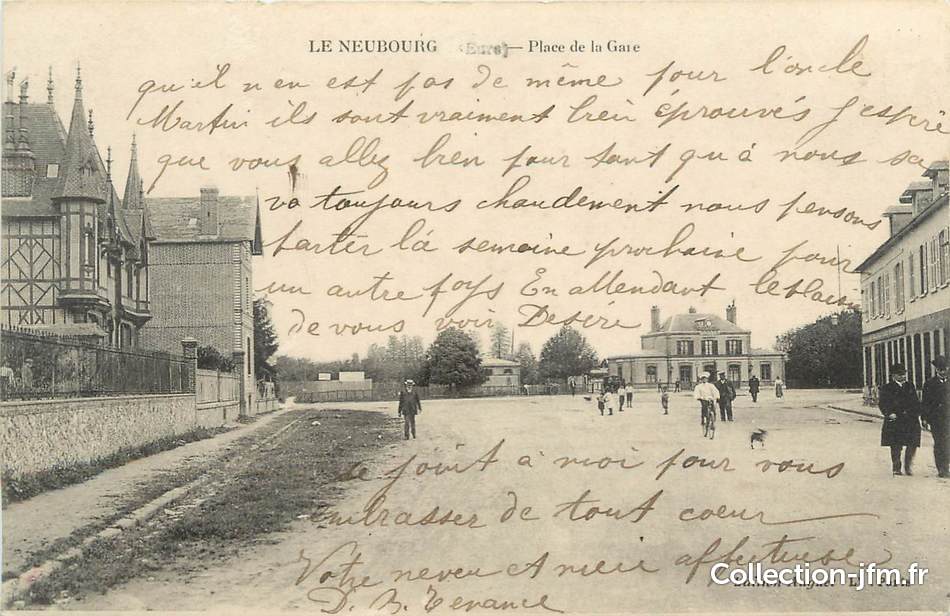 LE NEUBOURG (Eure) — Place de la Gare
qu'il n'en est pas de même pour l'oncle
Martin ils sont vraiment bien éprouvés j'espère
que vous allez bien pour tant qu'à nous sa
va toujours chaudement nous pensons
partir là semaine prochaine pour
un autre pays En attendant le plaisir
de vous voir Desiré
se joint à moi pour vous
embrasser de tout coeur
Votre neveu et niece affectueuse
D. B.
Collection-jfm.fr